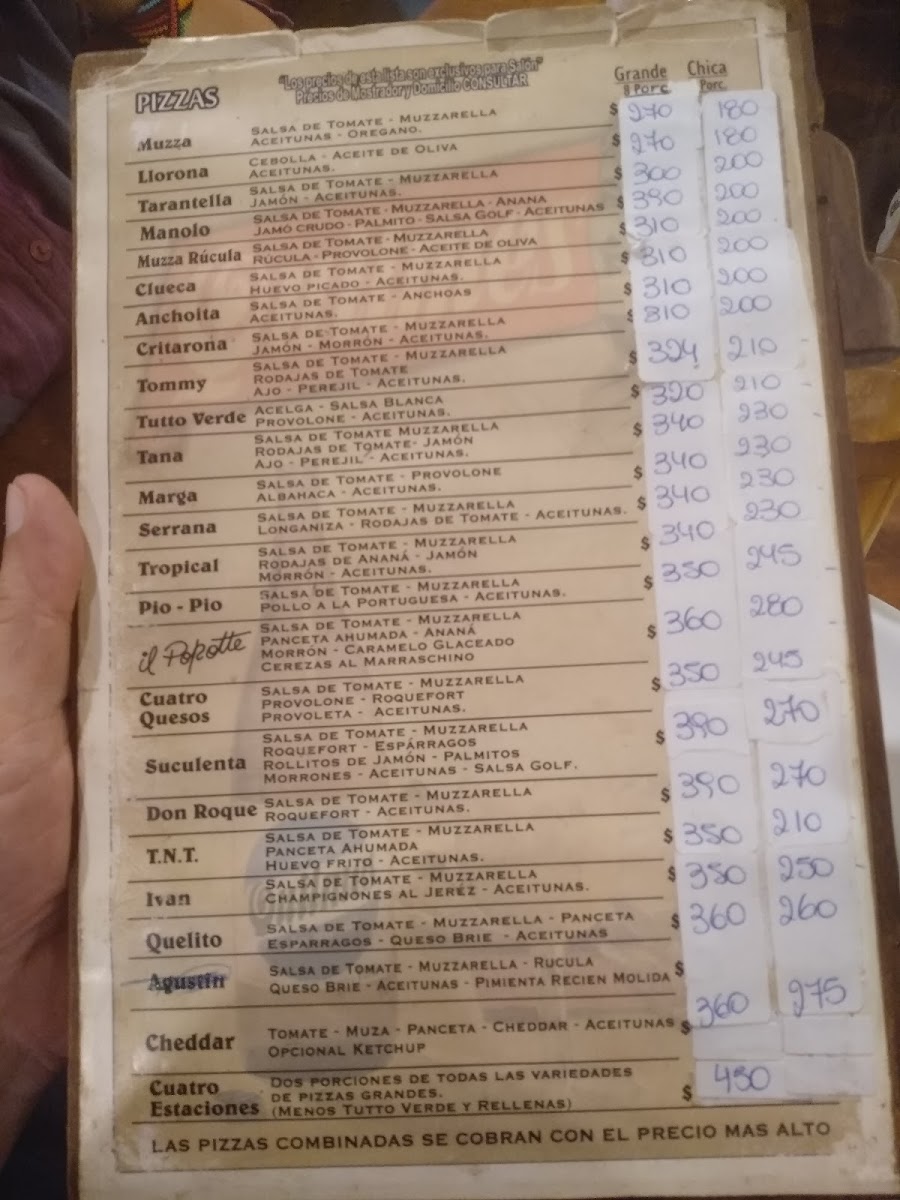 "Los precios de esta lista son exclusivos para Salón"
Precios de Mostrador y Domicilio CONSULTAR
PIZZAS
Grande Chica
8 Porc. Porc.
Muzza SALSA DE TOMATE - MUZZARELLA $ 270 180
ACEITUNAS - OREGANO.
Llorona CEBOLLA - ACEITE DE OLIVA $ 270 180
ACEITUNAS.
Tarantella SALSA DE TOMATE - MUZZARELLA $ 300 200
JAMÓN - ACEITUNAS.
Manolo SALSA DE TOMATE - MUZZARELLA - ANANA $ 390 200
JAMÓ CRUDO - PALMITO - SALSA GOLF - ACEITUNAS
Muzza Rúcula SALSA DE TOMATE - MUZZARELLA $ 310 200
RÚCULA - PROVOLONE - ACEITE DE OLIVA
Clueca SALSA DE TOMATE - MUZZARELLA $ 310 200
HUEVO PICADO - ACEITUNAS.
Anchoita SALSA DE TOMATE - ANCHOAS $ 310 200
ACEITUNAS.
Critarona SALSA DE TOMATE - MUZZARELLA $ 310 200
JAMÓN - MORRÓN - ACEITUNAS.
Tommy SALSA DE TOMATE - MUZZARELLA $ 324 210
RODAJAS DE TOMATE
AJO - PEREJIL - ACEITUNAS.
Tutto Verde ACELGA - SALSA BLANCA $ 320 210
PROVOLONE - ACEITUNAS.
Tana SALSA DE TOMATE MUZZARELLA $ 340 230
RODAJAS DE TOMATE- JAMÓN
AJO - PEREJIL - ACEITUNAS.
Marga SALSA DE TOMATE - PROVOLONE $ 340 230
ALBAHACA - ACEITUNAS.
Serrana SALSA DE TOMATE - MUZZARELLA $ 340 230
LONGANIZA - RODAJAS DE TOMATE - ACEITUNAS.
Tropical SALSA DE TOMATE - MUZZARELLA $ 340 230
RODAJAS DE ANANÁ - JAMÓN
MORRÓN - ACEITUNAS.
Pio - Pio SALSA DE TOMATE - MUZZARELLA $ 350 245
POLLO A LA PORTUGUESA - ACEITUNAS.
il Popotte SALSA DE TOMATE - MUZZARELLA $ 360 280
PANCETA AHUMADA - ANANÁ
MORRÓN - CARAMELO GLACEADO
CEREZAS AL MARRASCHINO
Cuatro Quesos SALSA DE TOMATE - MUZZARELLA $ 350 245
PROVOLONE - ROQUEFORT
PROVOLETA - ACEITUNAS.
Suculenta SALSA DE TOMATE - MUZZARELLA $ 390 270
ROQUEFORT - ESPÁRRAGOS
ROLLITOS DE JAMÓN - PALMITOS
MORRONES - ACEITUNAS - SALSA GOLF.
Don Roque SALSA DE TOMATE - MUZZARELLA $ 390 270
ROQUEFORT - ACEITUNAS.
T.N.T. SALSA DE TOMATE - MUZZARELLA $ 350 210
PANCETA AHUMADA
HUEVO FRITO - ACEITUNAS.
Ivan SALSA DE TOMATE - MUZZARELLA $ 350 250
CHAMPIGNONES AL JEREZ - ACEITUNAS.
Quelito SALSA DE TOMATE - MUZZARELLA - PANCETA $ 360 260
ESPARRAGOS - QUESO BRIE - ACEITUNAS
Agustín SALSA DE TOMATE - MUZZARELLA - RUCULA $
QUESO BRIE - ACEITUNAS - PIMIENTA RECIEN MOLIDA
Cheddar TOMATE - MUZA - PANCETA - CHEDDAR - ACEITUNAS $ 360 275
OPCIONAL KETCHUP
Cuatro Estaciones DOS PORCIONES DE TODAS LAS VARIEDADES $ 450
DE PIZZAS GRANDES.
(MENOS TUTTO VERDE Y RELLENAS)
LAS PIZZAS COMBINADAS SE COBRAN CON EL PRECIO MAS ALTO